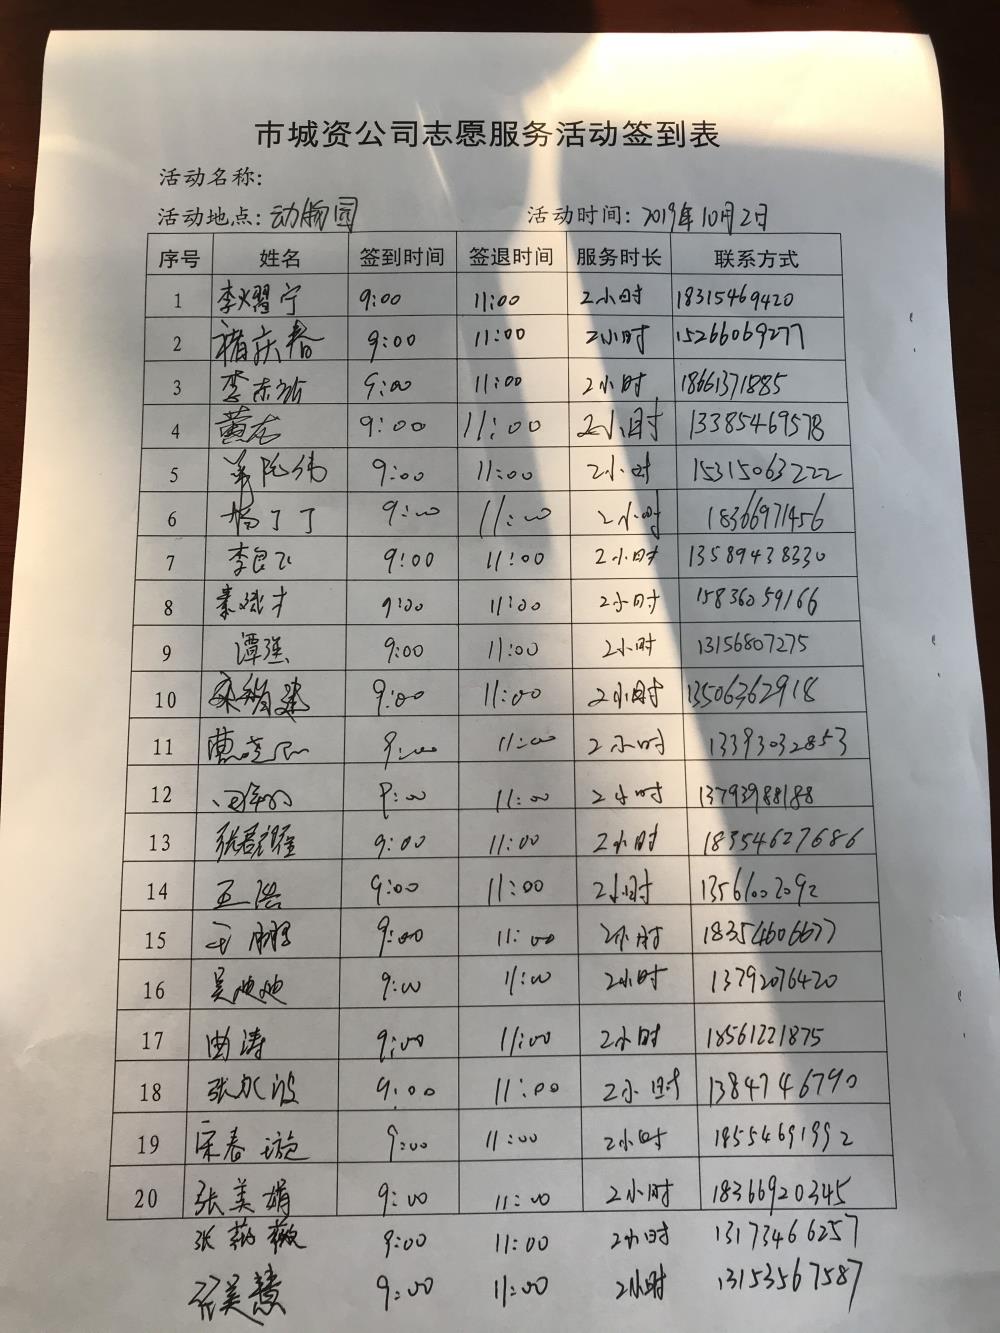 市城资公司志愿服务活动签到表
活动名称:
活动地点: 动物园 活动时间: 2019年10月2日
序号 姓名 签到时间 签退时间 服务时长 联系方式
1 李耀宁 9:00 11:00 2小时 18315469420
2 褚庆春 9:00 11:00 2小时 15266069277
3 李东 9:00 11:00 2小时 18661371885
4 黄 9:00 11:00 2小时 13385469578
5 伟 9:00 11:00 2小时 15315063222
6 杨丁丁 9:00 11:00 2小时 18366971456
7 李良飞 9:00 11:00 2小时 13589438330
8 秦斌才 9:00 11:00 2小时 15836059166
9 谭强 9:00 11:00 2小时 13156807275
10 9:00 11:00 2小时 13506362918
11 曹 9:00 11:00 2小时 13393032853
12 9:00 11:00 2小时 13793988188
13 张 9:00 11:00 2小时 18354627686
14 王浩 9:00 11:00 2小时 13561002092
15 王鹏 9:00 11:00 2小时 18354606677
16 吴迪迪 9:00 11:00 2小时 13792076420
17 曲涛 9:00 11:00 2小时 18561221875
18 张永波 9:00 11:00 2小时 13847446790
19 宋春璇 9:00 11:00 2小时 18554691992
20 张美娟 9:00 11:00 2小时 18366920345
张薇 9:00 11:00 2小时 13173466257
张美慧 9:00 11:00 2小时 13153567587